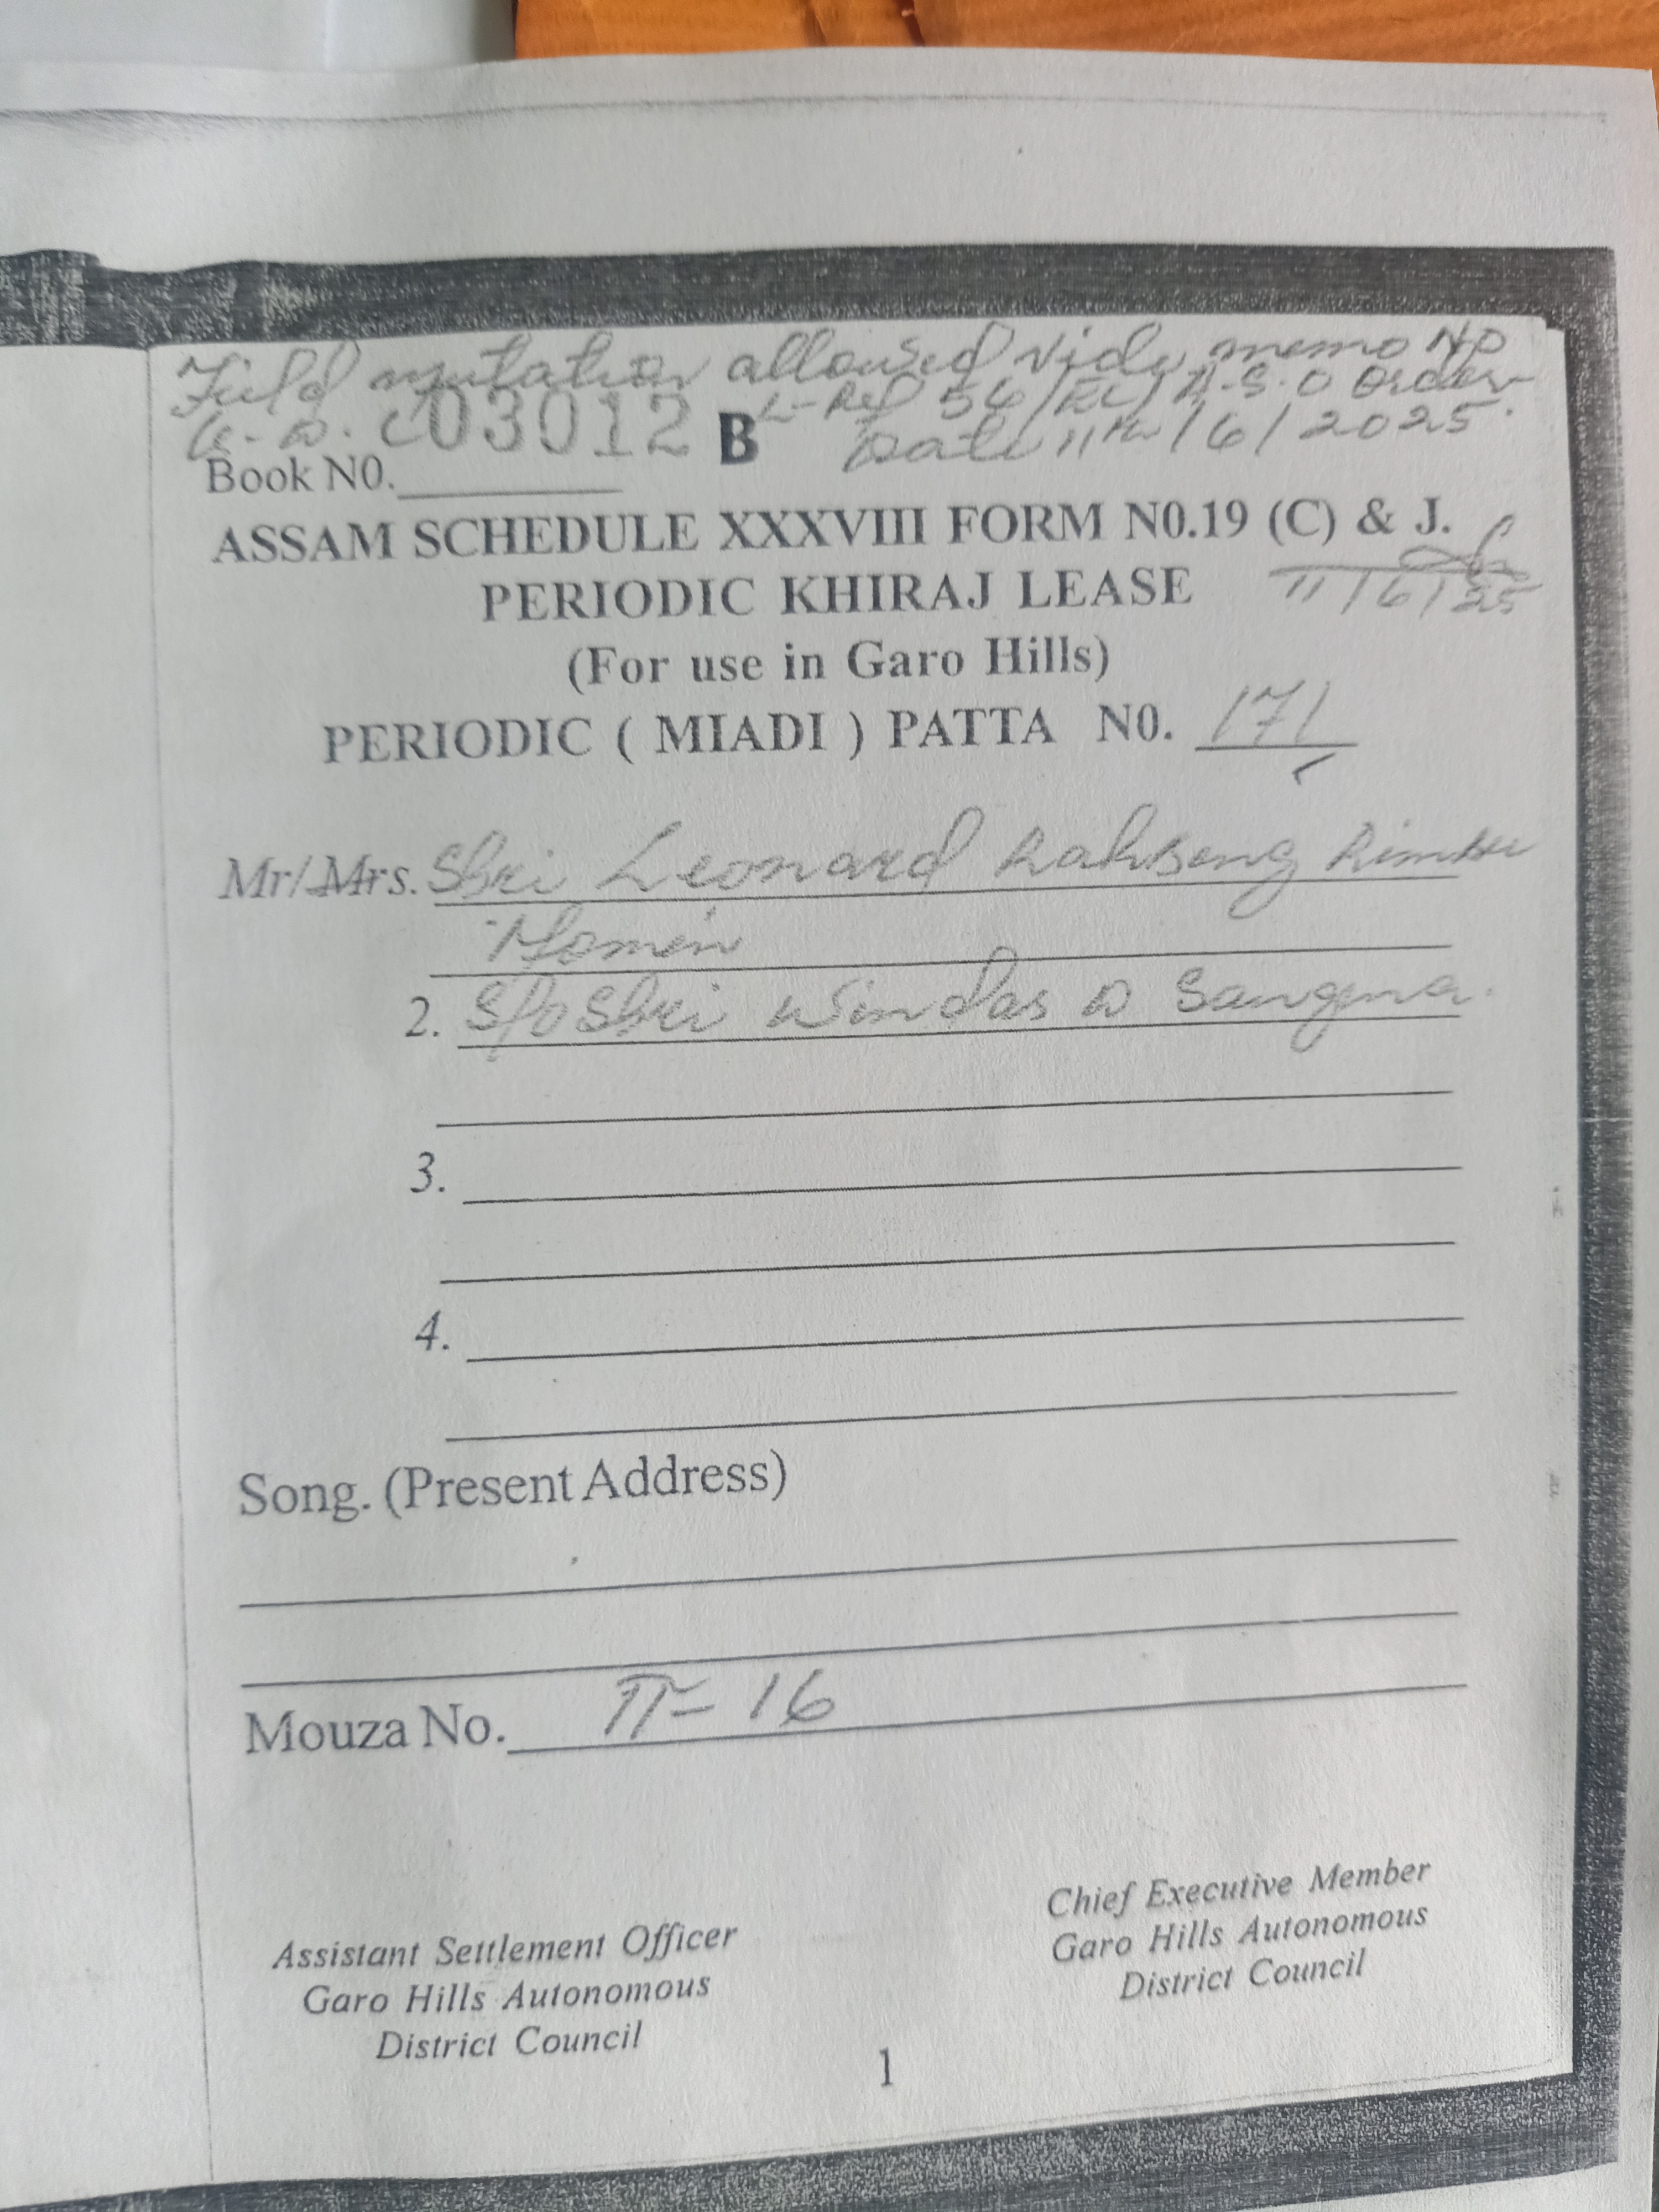 Field mutation allowed vide memo No
56 / A.S.O Order
03012 B Date 11th/6/2025.
Book N0.
ASSAM SCHEDULE XXXVIII FORM N0.19 (C) & J.
PERIODIC KHIRAJ LEASE 11/6/25
(For use in Garo Hills)
PERIODIC ( MIADI ) PATTA N0. 171
Mr/Mrs. Shri Leonard
Momin
2. S/o Shri Windas D Sangma.
3.
4.
Song. (Present Address)
Mouza No. II - 16
Assistant Settlement Officer
Garo Hills Autonomous
District Council
Chief Executive Member
Garo Hills Autonomous
District Council
1